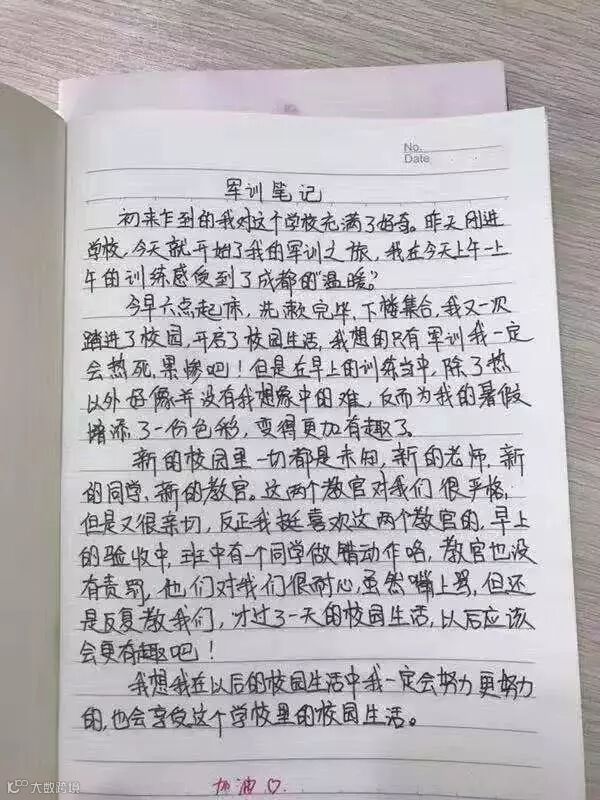 No.
Date
军训笔记
初来乍到的我对这个学校充满了好奇。昨天刚进
学校,今天就开始了我的军训之旅,我在今天上午一上
午的训练感受到了成都的"温暖"。
今早六点起床,洗漱完毕,下楼集合,我又一次
踏进了校园,开启了校园生活,我想的只有军训我一定
会热死,累惨吧!但是在早上的训练当中,除了热
以外好像并没有我想象中的难,反而为我的暑假
增添了一份色彩,变得更加有趣了。
新的校园里一切都是未知,新的老师,新
的同学、新的教官。这两个教官对我们很严格,
但是又很亲切,反正我挺喜欢这两个教官的,早上
的验收中,班中有一个同学做错动作咯,教官也没
有责罚,他们对我们很耐心,虽然嘴上骂,但还
是反复教我们,才过了一天的校园生活,以后应该
会更有趣吧!
我想我在以后的校园生活中我一定会努力更努力
的,也会享受这个学校里的校园生活。
加油
大数跨境